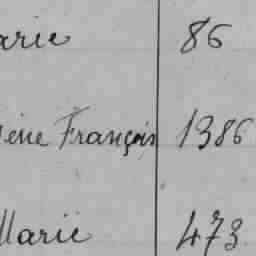 arie 86
ène François 1386
Marie 473